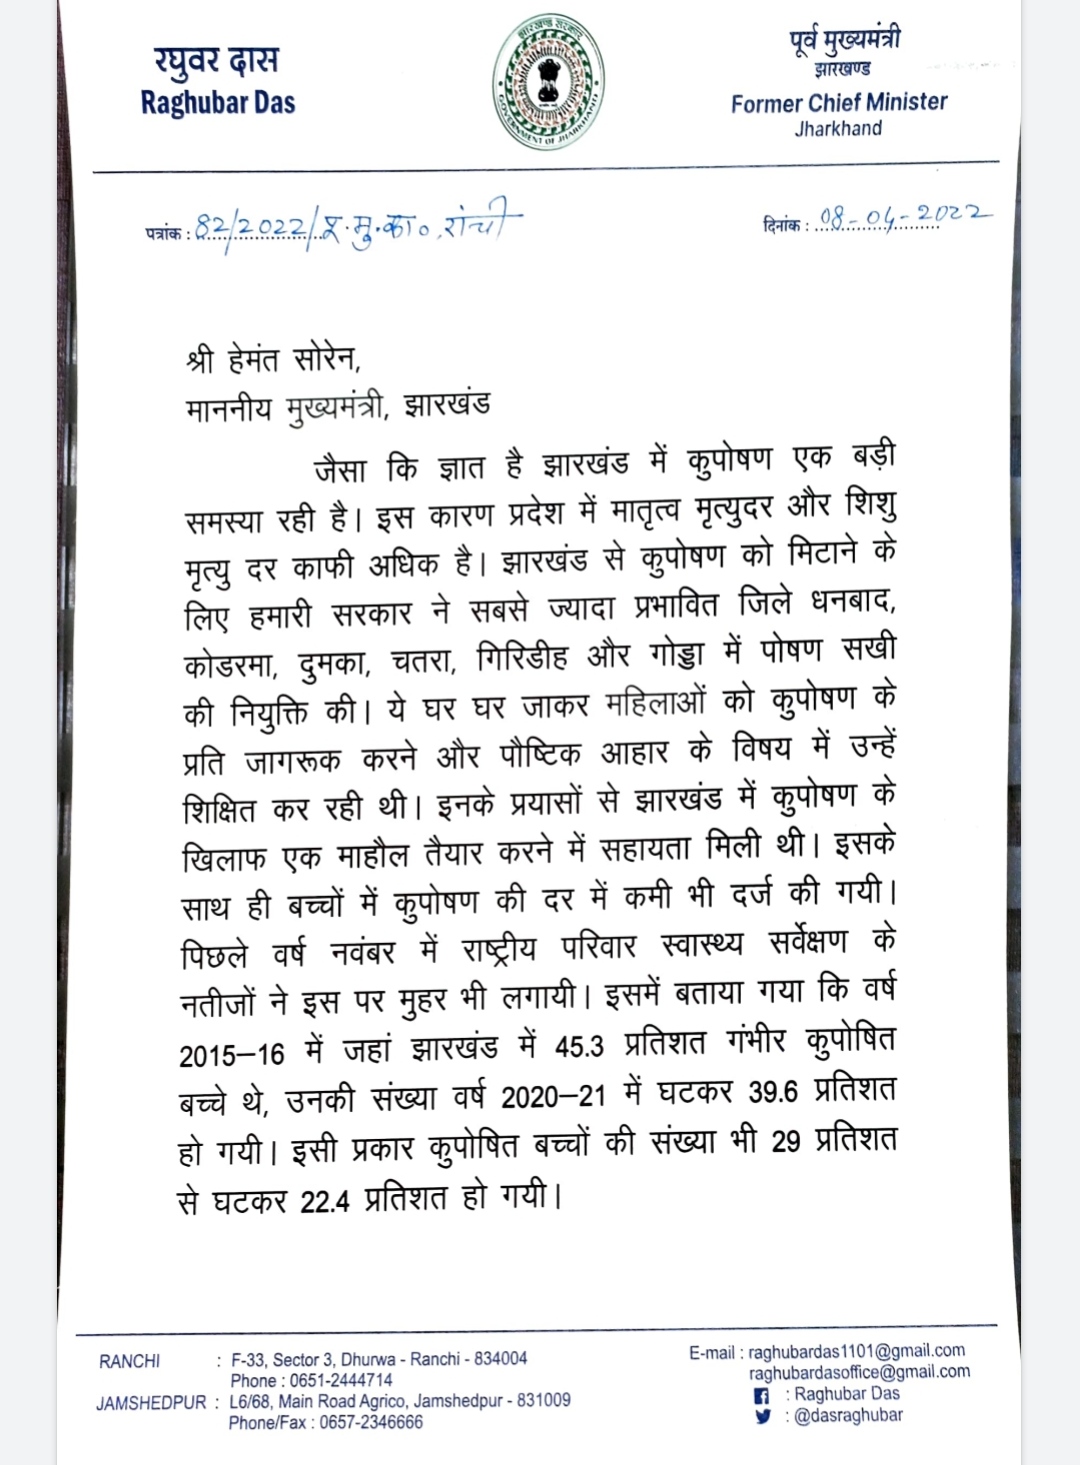 रघुवर दास
Raghubar Das
झारखण्ड सरकार
GOVERNMENT OF JHARKHAND
पूर्व मुख्यमंत्री
झारखण्ड
Former Chief Minister
Jharkhand
पत्रांक : 82/2022/पू.मु.का०,रांची
दिनांक : 08-04-2022
श्री हेमंत सोरेन,
माननीय मुख्यमंत्री, झारखंड
जैसा कि ज्ञात है झारखंड में कुपोषण एक बड़ी
समस्या रही है। इस कारण प्रदेश में मातृत्व मृत्युदर और शिशु
मृत्यु दर काफी अधिक है। झारखंड से कुपोषण को मिटाने के
लिए हमारी सरकार ने सबसे ज्यादा प्रभावित जिले धनबाद,
कोडरमा, दुमका, चतरा, गिरिडीह और गोड्डा में पोषण सखी
की नियुक्ति की। ये घर घर जाकर महिलाओं को कुपोषण के
प्रति जागरूक करने और पौष्टिक आहार के विषय में उन्हें
शिक्षित कर रही थी। इनके प्रयासों से झारखंड में कुपोषण के
खिलाफ एक माहौल तैयार करने में सहायता मिली थी। इसके
साथ ही बच्चों में कुपोषण की दर में कमी भी दर्ज की गयी।
पिछले वर्ष नवंबर में राष्ट्रीय परिवार स्वास्थ्य सर्वेक्षण के
नतीजों ने इस पर मुहर भी लगायी। इसमें बताया गया कि वर्ष
2015–16 में जहां झारखंड में 45.3 प्रतिशत गंभीर कुपोषित
बच्चे थे, उनकी संख्या वर्ष 2020–21 में घटकर 39.6 प्रतिशत
हो गयी। इसी प्रकार कुपोषित बच्चों की संख्या भी 29 प्रतिशत
से घटकर 22.4 प्रतिशत हो गयी।
RANCHI : F-33, Sector 3, Dhurwa - Ranchi - 834004
Phone : 0651-2444714
JAMSHEDPUR : L6/68, Main Road Agrico, Jamshedpur - 831009
Phone/Fax : 0657-2346666
E-mail : raghubardas1101@gmail.com
raghubardasoffice@gmail.com
: Raghubar Das
: @dasraghubar